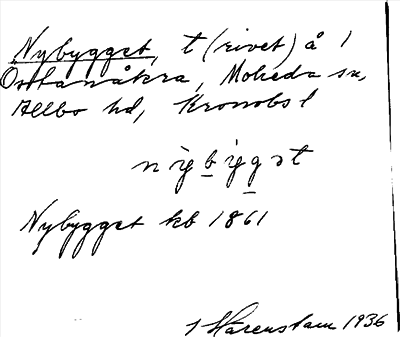 Nybygget, t (rivet) å 1
Östtanåkra, Moheda sn,
Allbo hd, Kronobs l
nẏbẏgət
Nybygget kb 1861
1 Härenstam 1936